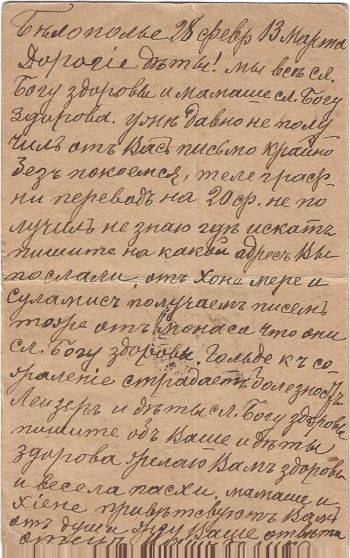 Бѣлополье 28 февр 13 марта
Дорогiе дѣты! мы всѣ сл.
Богу здоровы и мамаше сл. Богу
здорова. уже давно не полу
чилъ отъ Васъ письмо крайно
безъ покоемся, телеграф-
ни переводъ на 20 ф. не по
лучилъ не знаю гдѣ искать
пишите на какой адресъ Вы
послали, отъ Хоне мере и
суламисъ получаемъ писемъ
тоже отъ монаса что они
сл. Богу здоровы. Гольде къ со-
жраленiе страдаетъ болезность
Лейзеръ и дѣты сл. Богу здоровы
пишите объ Ваше и дѣты
здорова желаю Вамъ здоровы
и весела пасхи, мамаше и
Хiене привѣтствуютъ Вамъ
отъ души жду Ваше отвѣта
отецъ